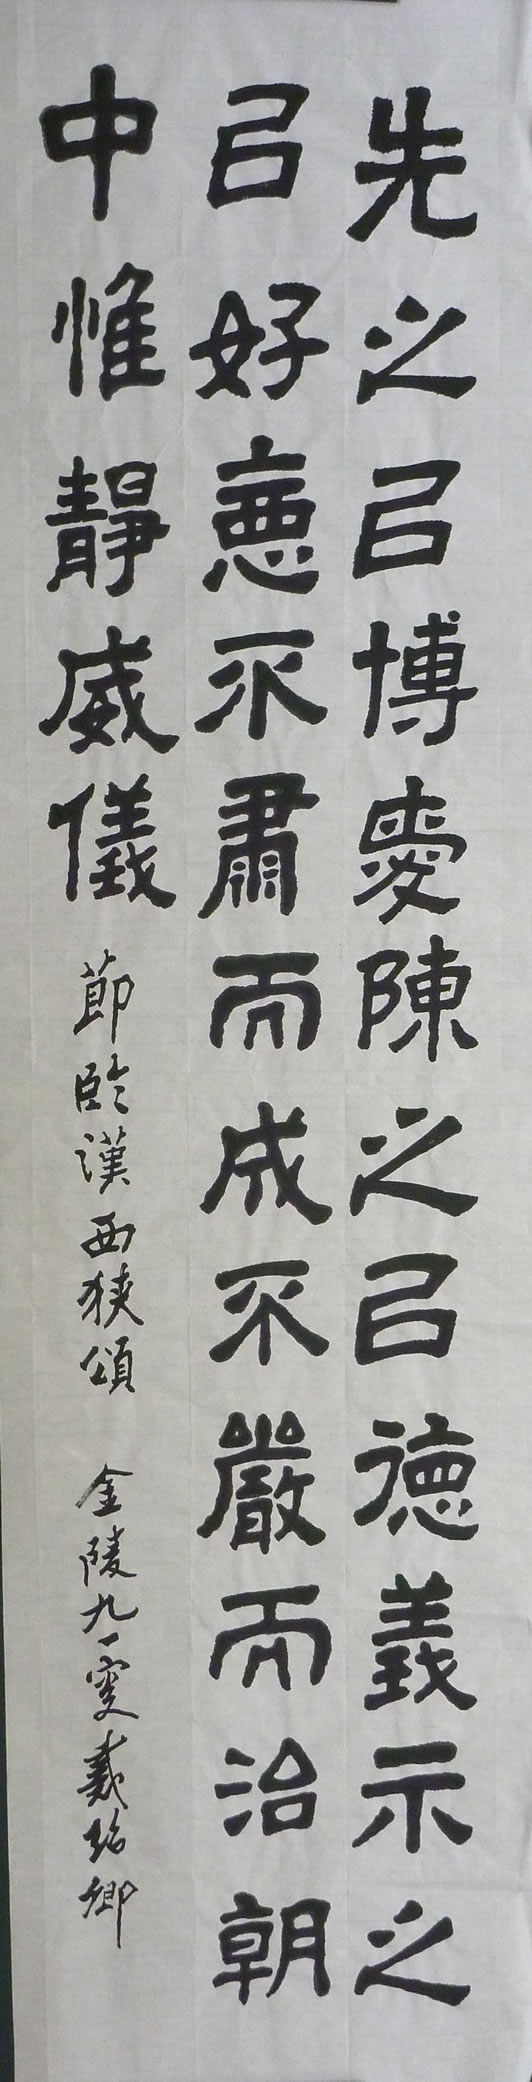 先之㠯博愛陳之㠯德義示之
㠯好惡不肅而成不嚴而治朝
中惟靜威儀
節臨漢西狹頌 金陵九一叟戴紹卿